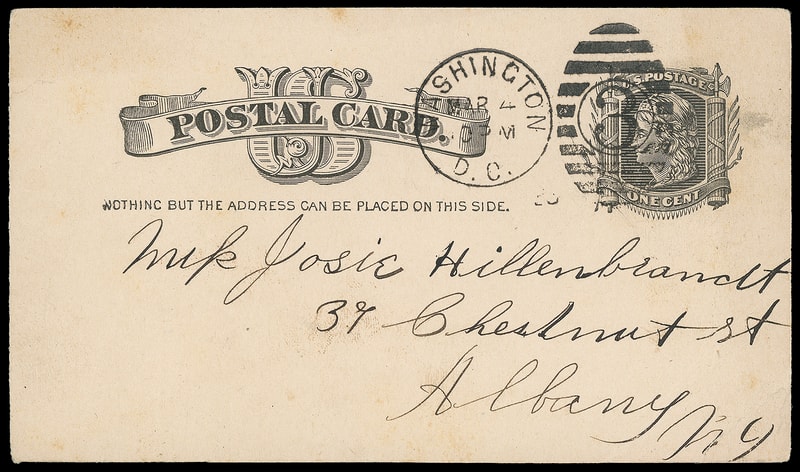 US
POSTAL CARD.
WASHINGTON
MAR 4
PM
D.C.
3
U.S. POSTAGE
ONE CENT
NOTHING BUT THE ADDRESS CAN BE PLACED ON THIS SIDE.
Josie Hillenbrandt
37 Chestnut st
Albany NY